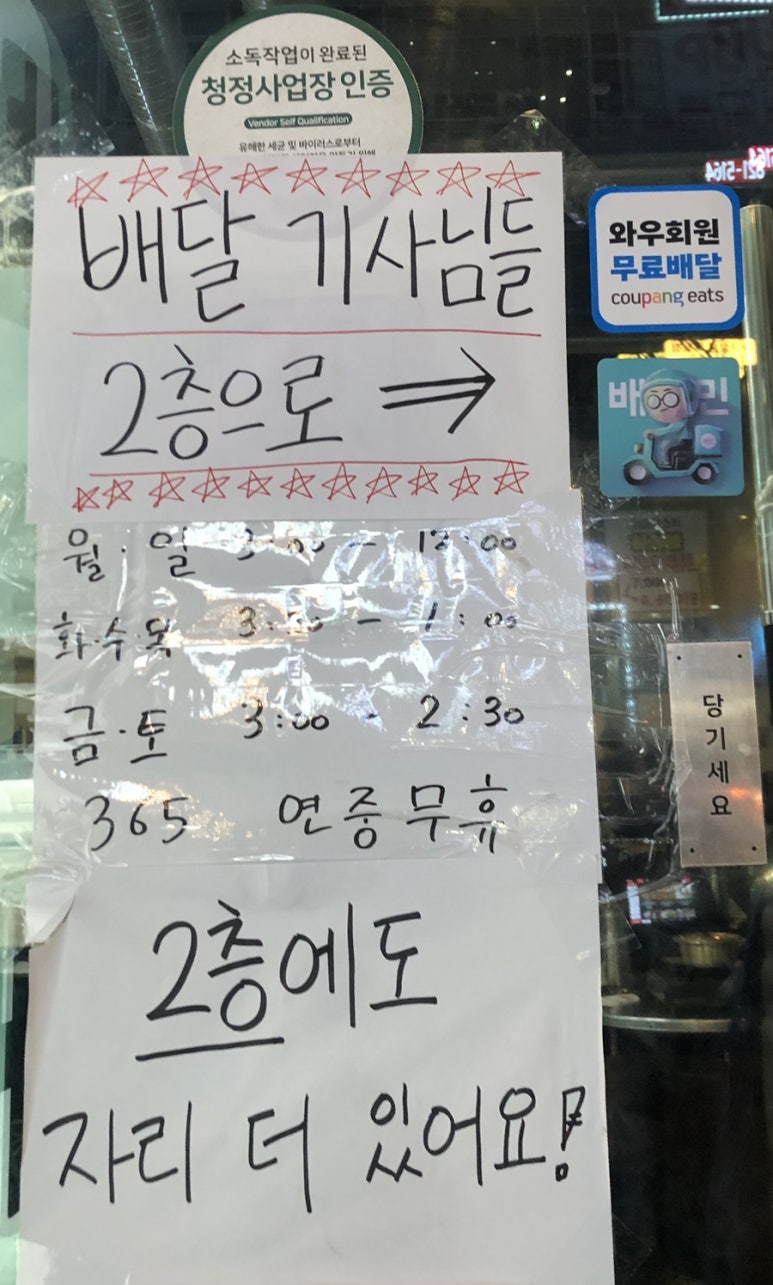 소독작업이 완료된
청정사업장 인증
Vendor Self Qualification
유해한 세균 및 바이러스로부터
배달 기사님들
2층으로 ⇒
월·일 3:00 - 12:00
화·수·목 3:00 - 1:00
금·토 3:00 - 2:30
365 연중무휴
2층에도
자리 더 있어요!
와우회원
무료배달
coupang eats
배 민
당기세요
821-5164